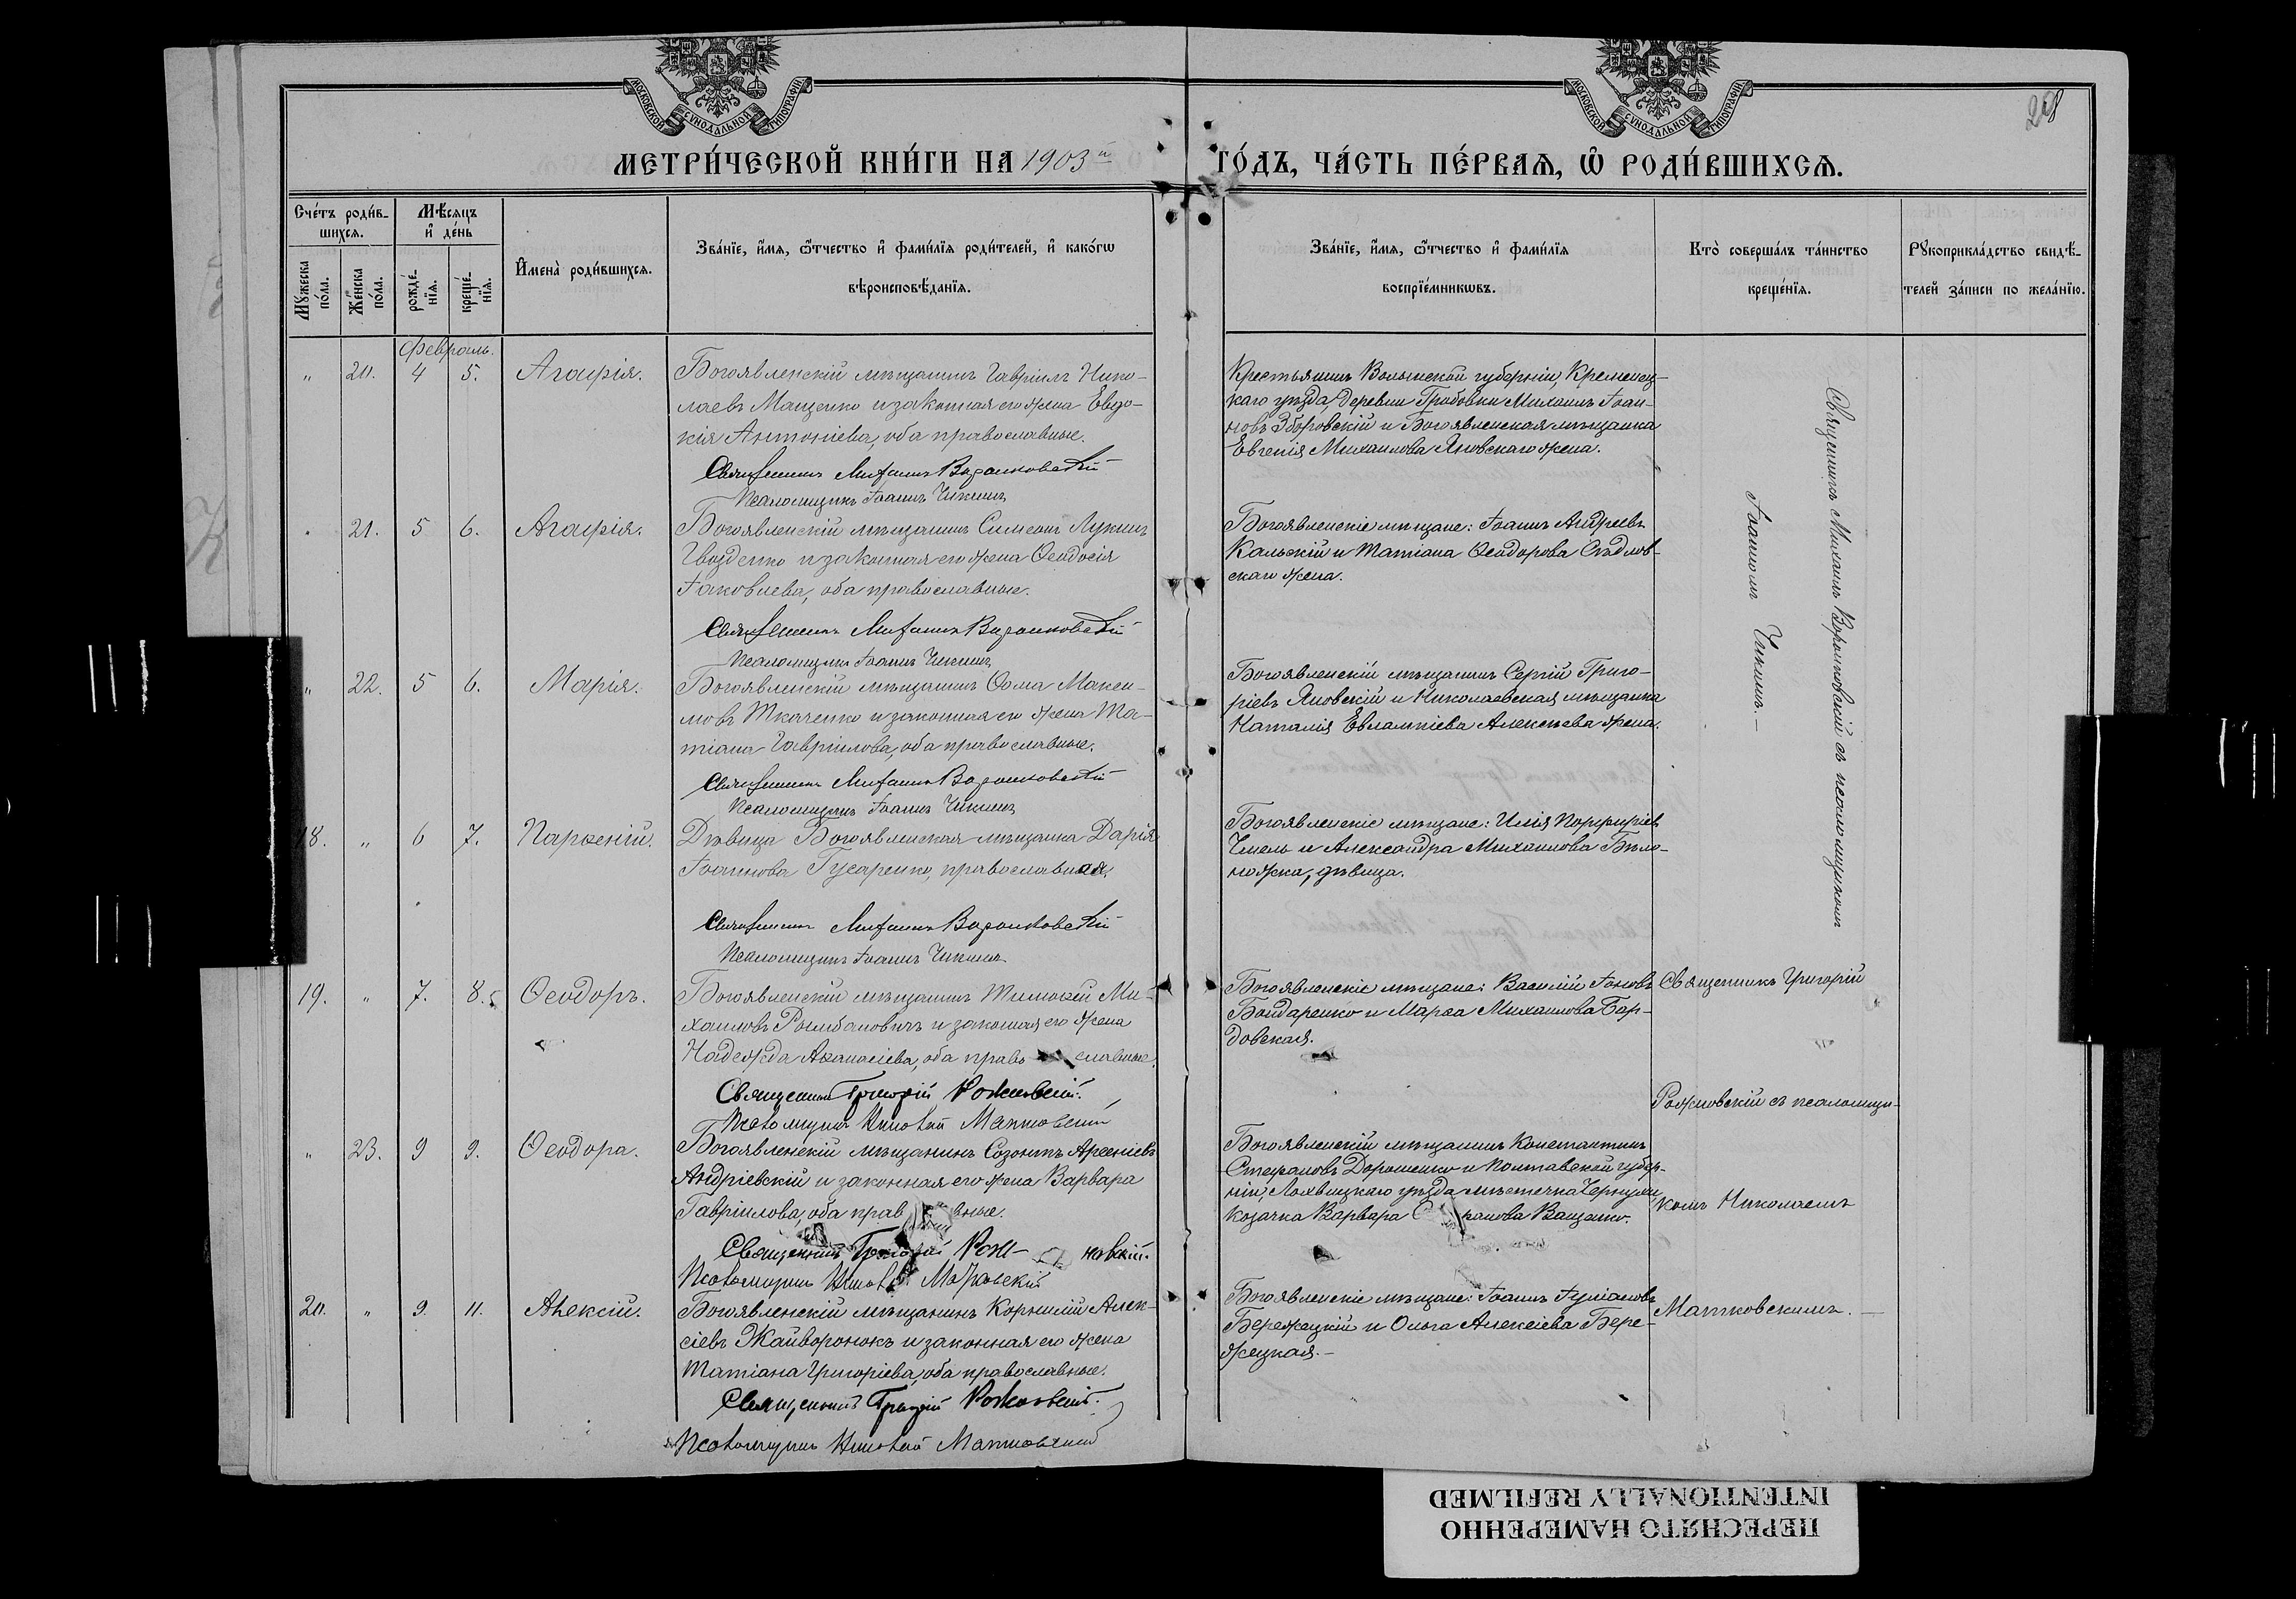 МОСКОВСКОЙ СѴНОДАЛЬНОЙ ТИПОГРАФІИ.
МОСКОВСКОЙ СѴНОДАЛЬНОЙ ТИПОГРАФІИ.
28
МЕТРИ́ЧЕСКОЙ КНИ́ГИ НА 1903 й ГО́ДЪ, ЧА́СТЬ ПЕ́РВАѦ, Ѡ҆ РОДИ́ВШИХСѦ.
Сче́тъ роди́в-
шихсѧ.
Мꙋ́жеска
по́ла.
Же́нска
по́ла.
Мѣ́сѧцъ
и҆ де́нь
рожде́-
нїѧ.
креще́-
нїѧ.
И҆мена̀ роди́вшихсѧ.
Зва́нїе, и҆́мѧ, ѻ҆́тчество и҆ фами́лїѧ роди́телей, и҆ како́гѡ
вѣроисповѣ́данїѧ.
Зва́нїе, и҆́мѧ, ѻ҆́тчество и҆ фами́лїѧ
воспрїе́мникѡвъ.
Кто̀ соверша́лъ та́инство
креще́нїѧ.
Рꙋкоприкла́дство свидѣ́-
телей за́писи по жела́нїю.
Февраль.
" 20. 4 5. Агафія.
Богоявленскій мѣщанинъ Гавріилъ Нико-
лаевъ Мащенко и законная его жена Евдо-
кія Антоніева, оба православные.
Священникъ Михаилъ Воронковскій
Псаломщикъ Іоаннъ Чикинъ
Крестьянинъ Волынской губерніи, Кременец-
каго уѣзда, деревни Грибовки Михаилъ Іоан-
новъ Зборовскій и Богоявленская мѣщанка
Евгенія Михаилова Яновскаго жена.
" 21. 5 6. Агафія.
Богоявленскій мѣщанинъ Симеонъ Лукинъ
Гвозденко и законная его жена Ѳеодосія
Іаковлева, оба православные.
Священникъ Михаилъ Воронковскій
Псаломщикъ Іоаннъ Чикинъ
Богоявленскіе мѣщане: Іоаннъ Андреевъ
Кальскій и Татіана Ѳеодорова Сѣдлов-
скаго жена.
" 22. 5 6. Марія.
Богоявленскій мѣщанинъ Ѳома Макси-
мовъ Ткаченко и законная его жена Та-
тіана Гавріилова, оба православные.
Священникъ Михаилъ Воронковскій
Псаломщикъ Іоаннъ Чикинъ
Богоявленскій мѣщанинъ Сергій Григо-
ріевъ Яновскій и Николаевская мѣщанка
Наталія Евлампіева Алексѣева жена.
18. " 6 7. Парѳеній.
Дѣвица Богоявленская мѣщанка Дарія
Іоаннова Гусаренко, православная.
Священникъ Михаилъ Воронковскій
Псаломщикъ Іоаннъ Чикинъ
Богоявленскіе мѣщане: Илія Порфиріевъ
Чмель и Александра Михаилова Бѣло-
ножка, дѣвица.
Священникъ Михаилъ Воронковскій съ псаломщикомъ
Іоанномъ Чикинымъ.—
19. " 7. 8. Ѳеодоръ.
Богоявленскій мѣщанинъ Тимоѳей Ми-
хаиловъ и законная его жена
Надежда Аѳанасіева, оба право славные.
Священникъ Григорій Рожновскій.
Псаломщикъ Николай Матковскій
Богоявленскіе мѣщане: Василій Іоновъ
Бондаренко и Марѳа Михаилова Бар-
довская.
Священникъ Григорій
Рожновскій съ псаломщи-
комъ Николаемъ
Матковскимъ.—
" 23. 9 9. Ѳеодора.
Богоявленскій мѣщанинъ Созонтъ Арсеніевъ
Андріевскій и законная его жена Варвара
Гавріилова, оба прав вные.
Священникъ Григорій Рож- новскій.
Псаломщикъ Николай Матковскій
Богоявленскій мѣщанинъ Константинъ
Стефановъ Дорошенко и Полтавской губер-
ніи, Лохвицкаго уѣзда мѣстечка Чернухи
козачка Варвара Ващенко.
20. " 9. 11. Алексій.
Богоявленскій мѣщанинъ Корнилій Алек-
сіевъ Жайворонокъ и законная его жена
Татіана Григоріева, оба православные.
Священникъ Григорій Рожновскій.
Псаломщикъ Николай Матковскій
Богоявленскіе мѣщане: Іоаннъ Іуліановъ
Бережецкій и Ольга Алексіева Бере-
жецкая.—
ПЕРЕСНЯТО НАМЕРЕННО
INTENTIONALLY REFILMED